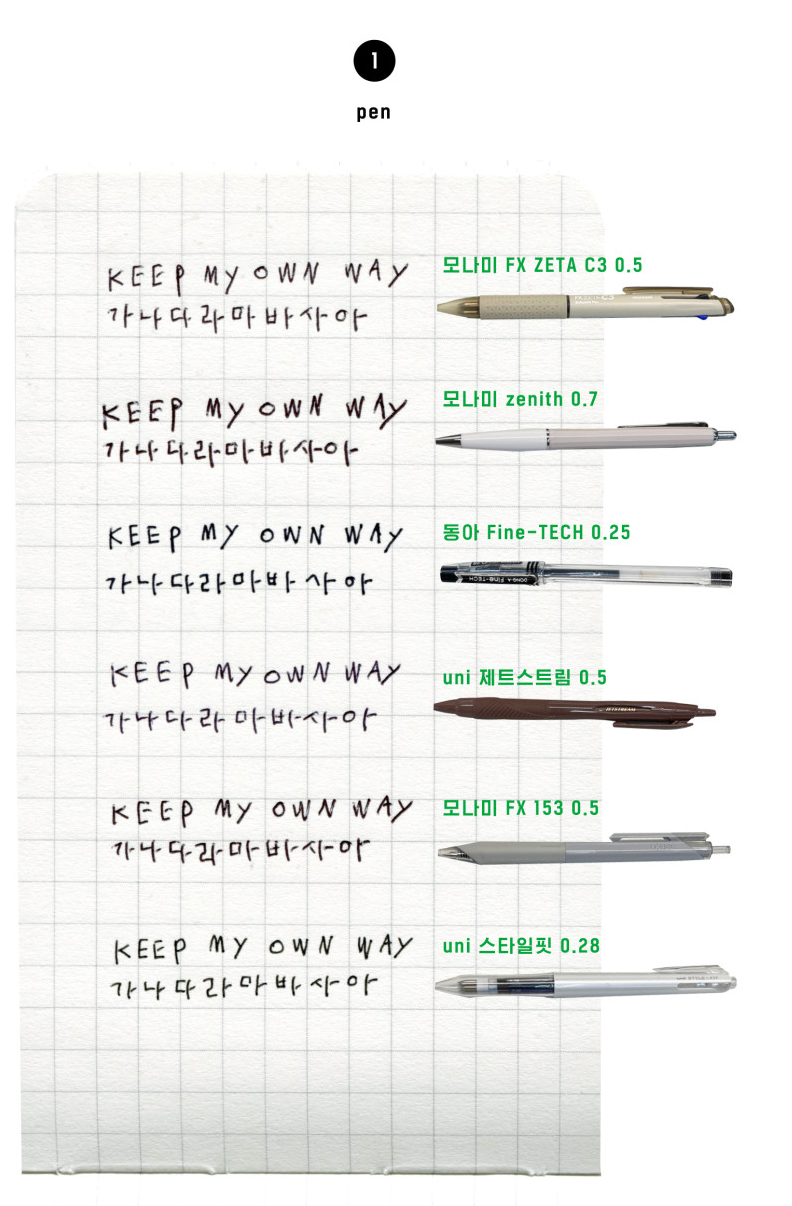 1
pen
KEEP MY OWN WAY
모나미 FX ZETA C3 0.5
가나다라마바사아
KEEP MY OWN WAY
모나미 zenith 0.7
가나다라마바사아
KEEP MY OWN WAY
동아 Fine-TECH 0.25
가나다라마바사아
DONG-A Fine-TECH
KEEP MY OWN WAY
uni 제트스트림 0.5
가나다라마바사아
JETSTREAM
KEEP MY OWN WAY
모나미 FX 153 0.5
가나다라마바사아
KEEP MY OWN WAY
uni 스타일핏 0.28
가나다라마바사아